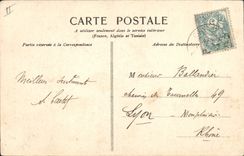 II
CARTE POSTALE
A utiliser seulement dans le service intérieur
(France, Algérie et Tunisie)
Partie réservée à la Correspondance
Adresse du Destinataire
5
Meilleur
Monsieur Ballandier
chemin des Tournelles 49
Lyon Monplaisir
Rhône